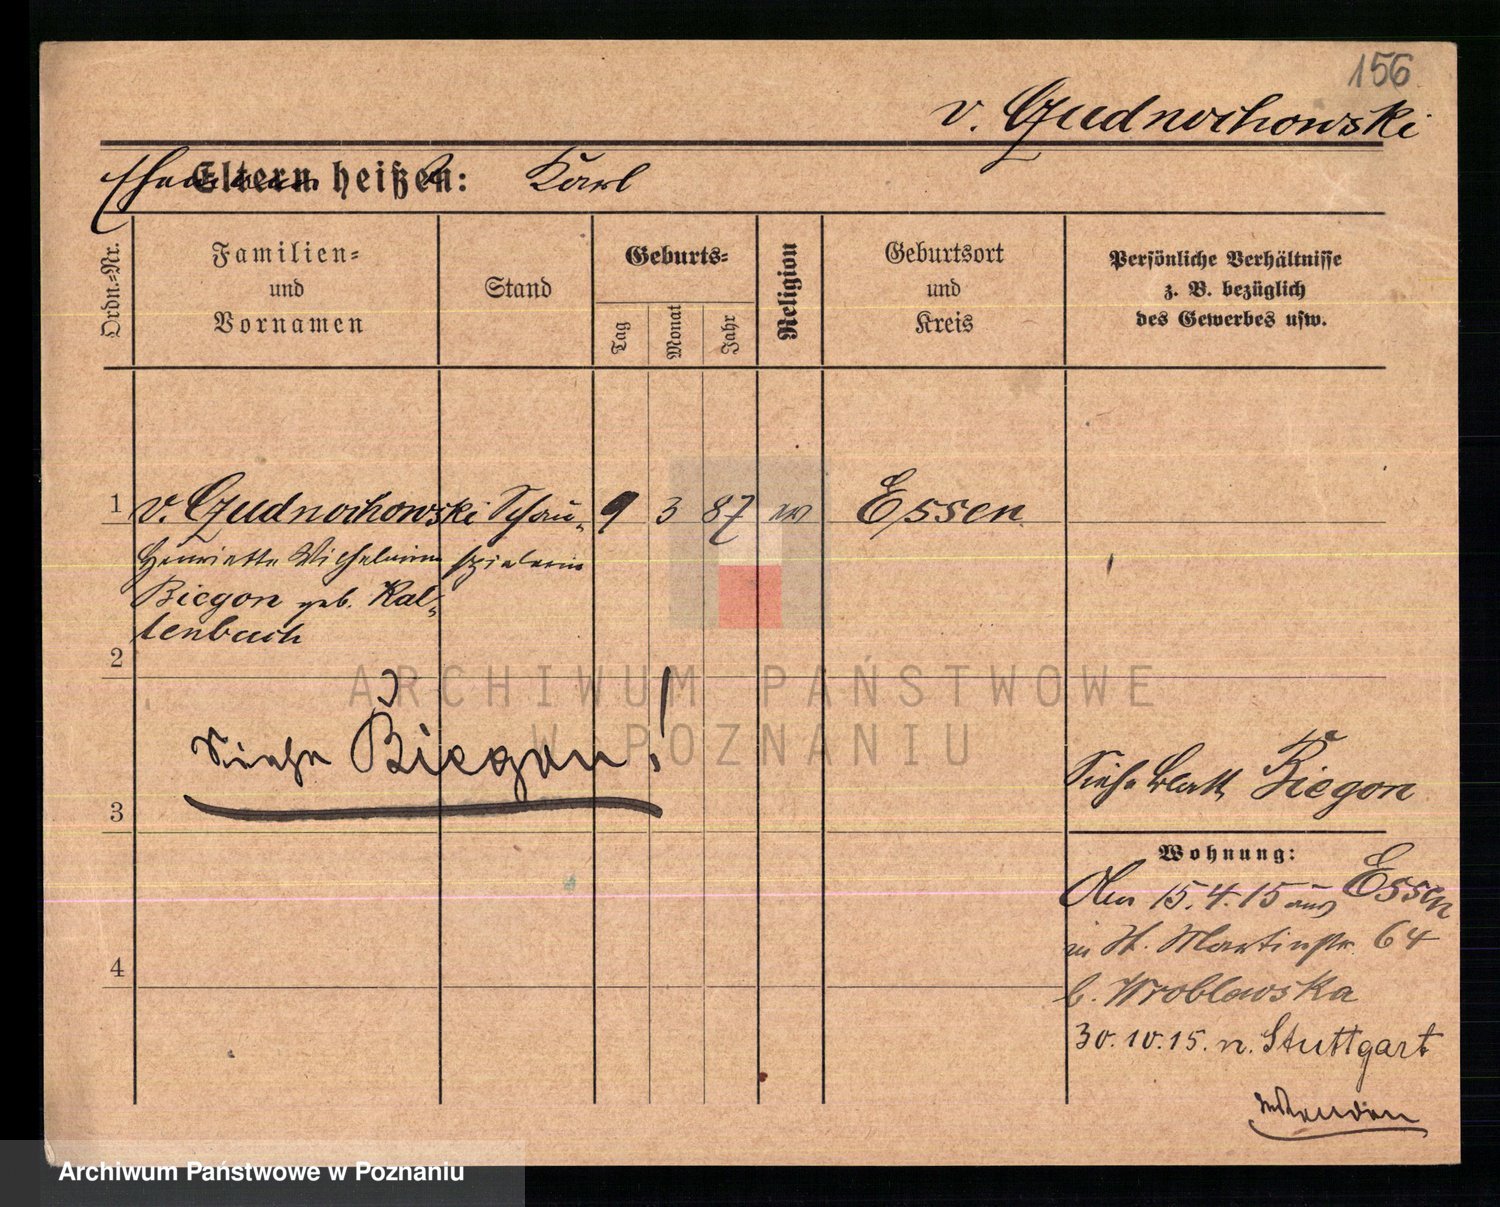 156
v. Czudnochowski
Ehemann Eltern heißen: Karl
Ordn.-Nr.
Familien-
und
Vornamen
Stand
Geburts-
Tag
Monat
Jahr
Religion
Geburtsort
und
Kreis
Persönliche Verhältnisse
z. B. bezüglich
des Gewerbes usw.
1 v. Czudnochowski Schau- 9 3 87 ev Essen
Henriette Wilhelmine spielerin
Biegon geb. Kal-
tenbach
2
Siehe Biegon!
Siehe Blatt Biegon
3
Wohnung:
Am 15.4.15 aus Essen
in St. Martinstr. 64
b. Wroblewska
4
30.10.15. n. Stuttgart
wenden
ARCHIWUM PAŃSTWOWE
W POZNANIU
Archiwum Państwowe w Poznaniu